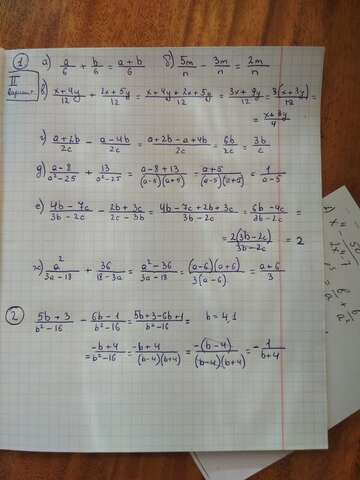 1 II Вариант
а) a/6 + b/6 = (a+b)/6 б) 5m/n - 3m/n = 2m/n
в) (x+4y)/12 + (2x+5y)/12 = (x+4y+2x+5y)/12 = (3x+9y)/12 = 3(x+3y)/12 =
= (x+3y)/4
г) (a+2b)/2c - (a-4b)/2c = (a+2b-a+4b)/2c = 6b/2c = 3b/c
д) (a-8)/(a²-25) + 13/(a²-25) = (a-8+13)/((a-5)(a+5)) = (a+5)/((a-5)(a+5)) = 1/(a-5)
е) (4b-7c)/(3b-2c) - (2b+3c)/(2c-3b) = (4b-7c+2b+3c)/(3b-2c) = (6b-4c)/(3b-2c) =
= 2(3b-2c)/(3b-2c) = 2
ж) a²/(3a-18) + 36/(18-3a) = (a²-36)/(3a-18) = (a-6)(a+6)/(3(a-6)) = (a+6)/3
2 (5b+3)/(b²-16) - (6b-1)/(b²-16) = (5b+3-6b+1)/(b²-16) = b=4,1
= (-b+4)/(b²-16) = (-b+4)/((b-4)(b+4)) = -(b-4)/((b-4)(b+4)) = -1/(b+4)